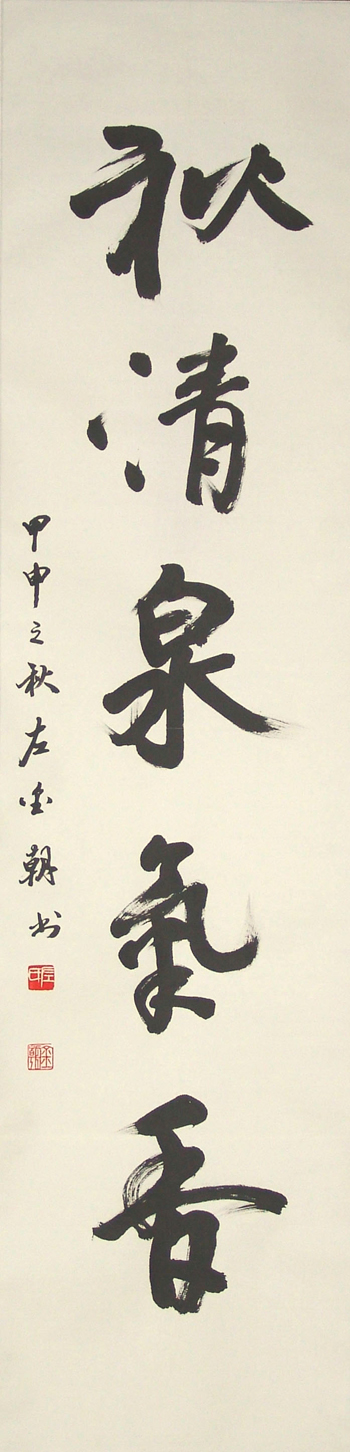 秋清泉氣香
甲申之秋左金朝书